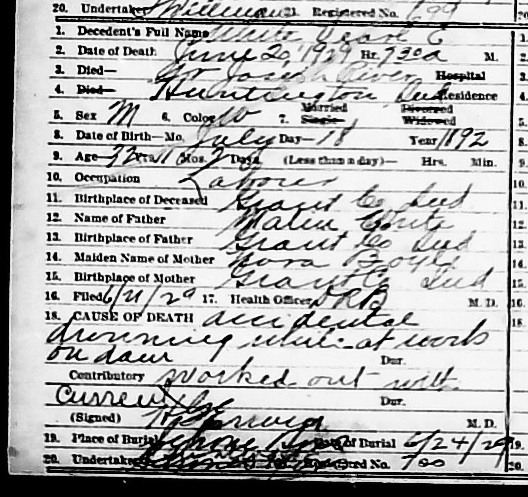 20. Undertaker Registered No. 699
1. Decedent's Full Name White Isaac C
2. Date of Death June 20 1929 Hr. 730a M.
3. Died— St Joseph River Hospital
4. Died— Huntington Ind Residence
5. Sex M 6. Color W 7. Married Single Divorced Widowed
8. Date of Birth—Mo. July Day—18 Year 1892
9. Age Yrs. 11 Mos. 2 Days (Less than a day)— Hrs. Min.
10. Occupation Laborer
11. Birthplace of Deceased Grant Co Ind
12. Name of Father White
13. Birthplace of Father Grant Co Ind
14. Maiden Name of Mother Nora
15. Birthplace of Mother Grant Co Ind
16. Filed 6/21/29 17. Health Officer M. D.
18. CAUSE OF DEATH accidental
drowning while at work
on dam Dur.
Contributory worked out with
Current Dur.
(Signed) M. D.
19. Place of Burial Date of Burial 6/24/29
20. Undertaker Registered No. 700